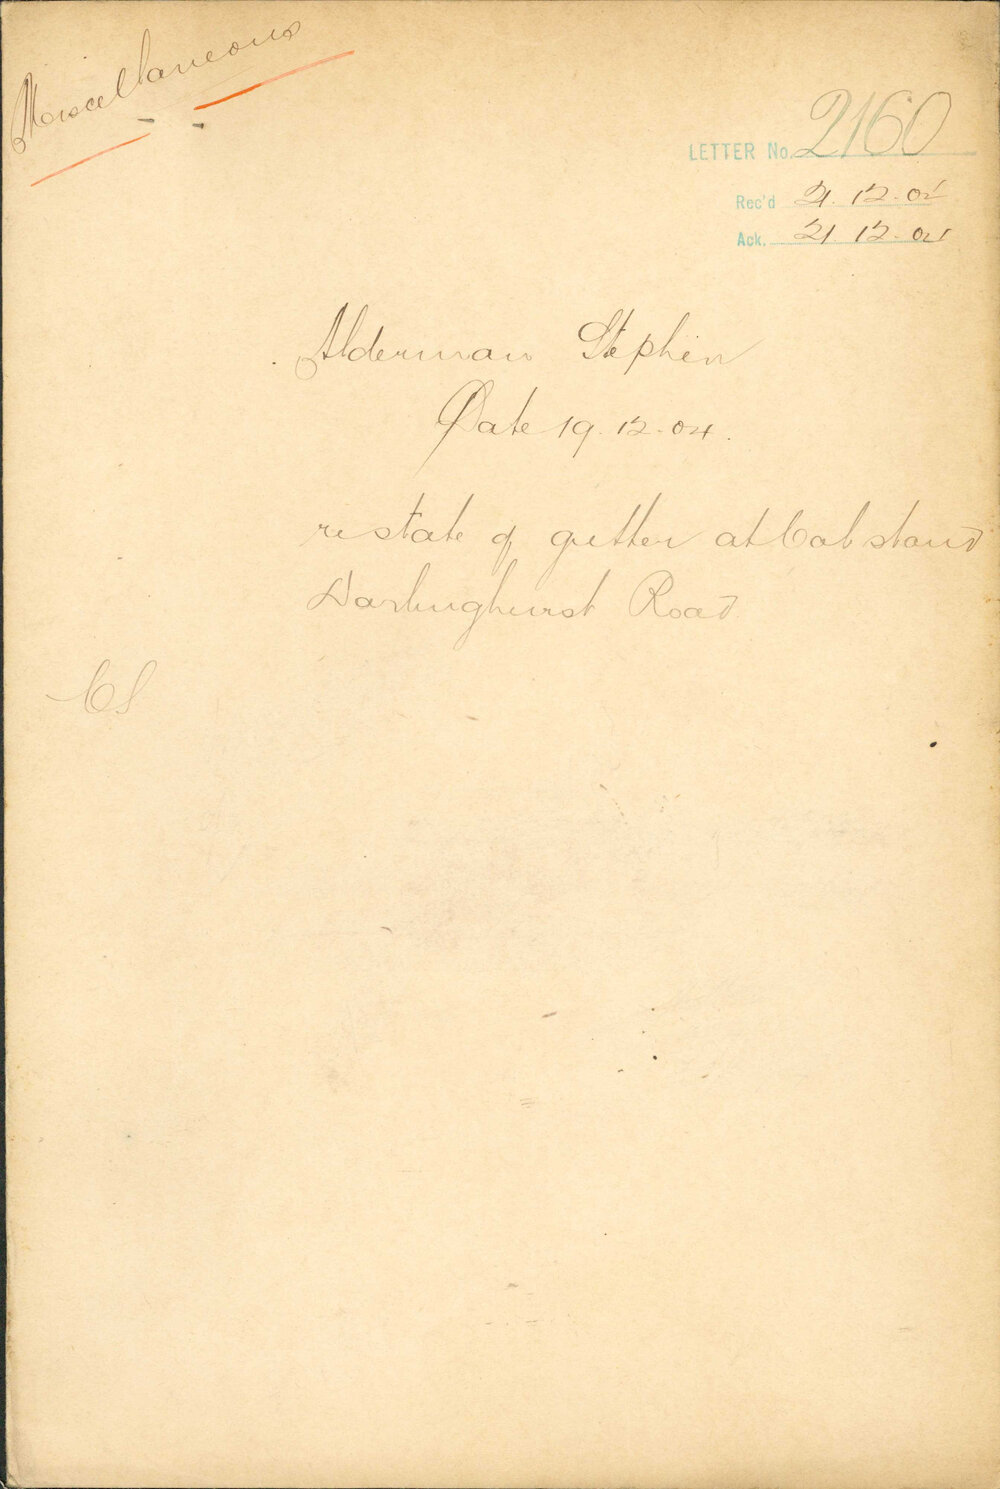 Miscellaneous
LETTER No. 2160
Rec'd 21.12.04
Ack. 21.12.04
Alderman Stephen
Date 19.12.04.
re state of gutter at Cab stand
Darlinghurst Road
CS